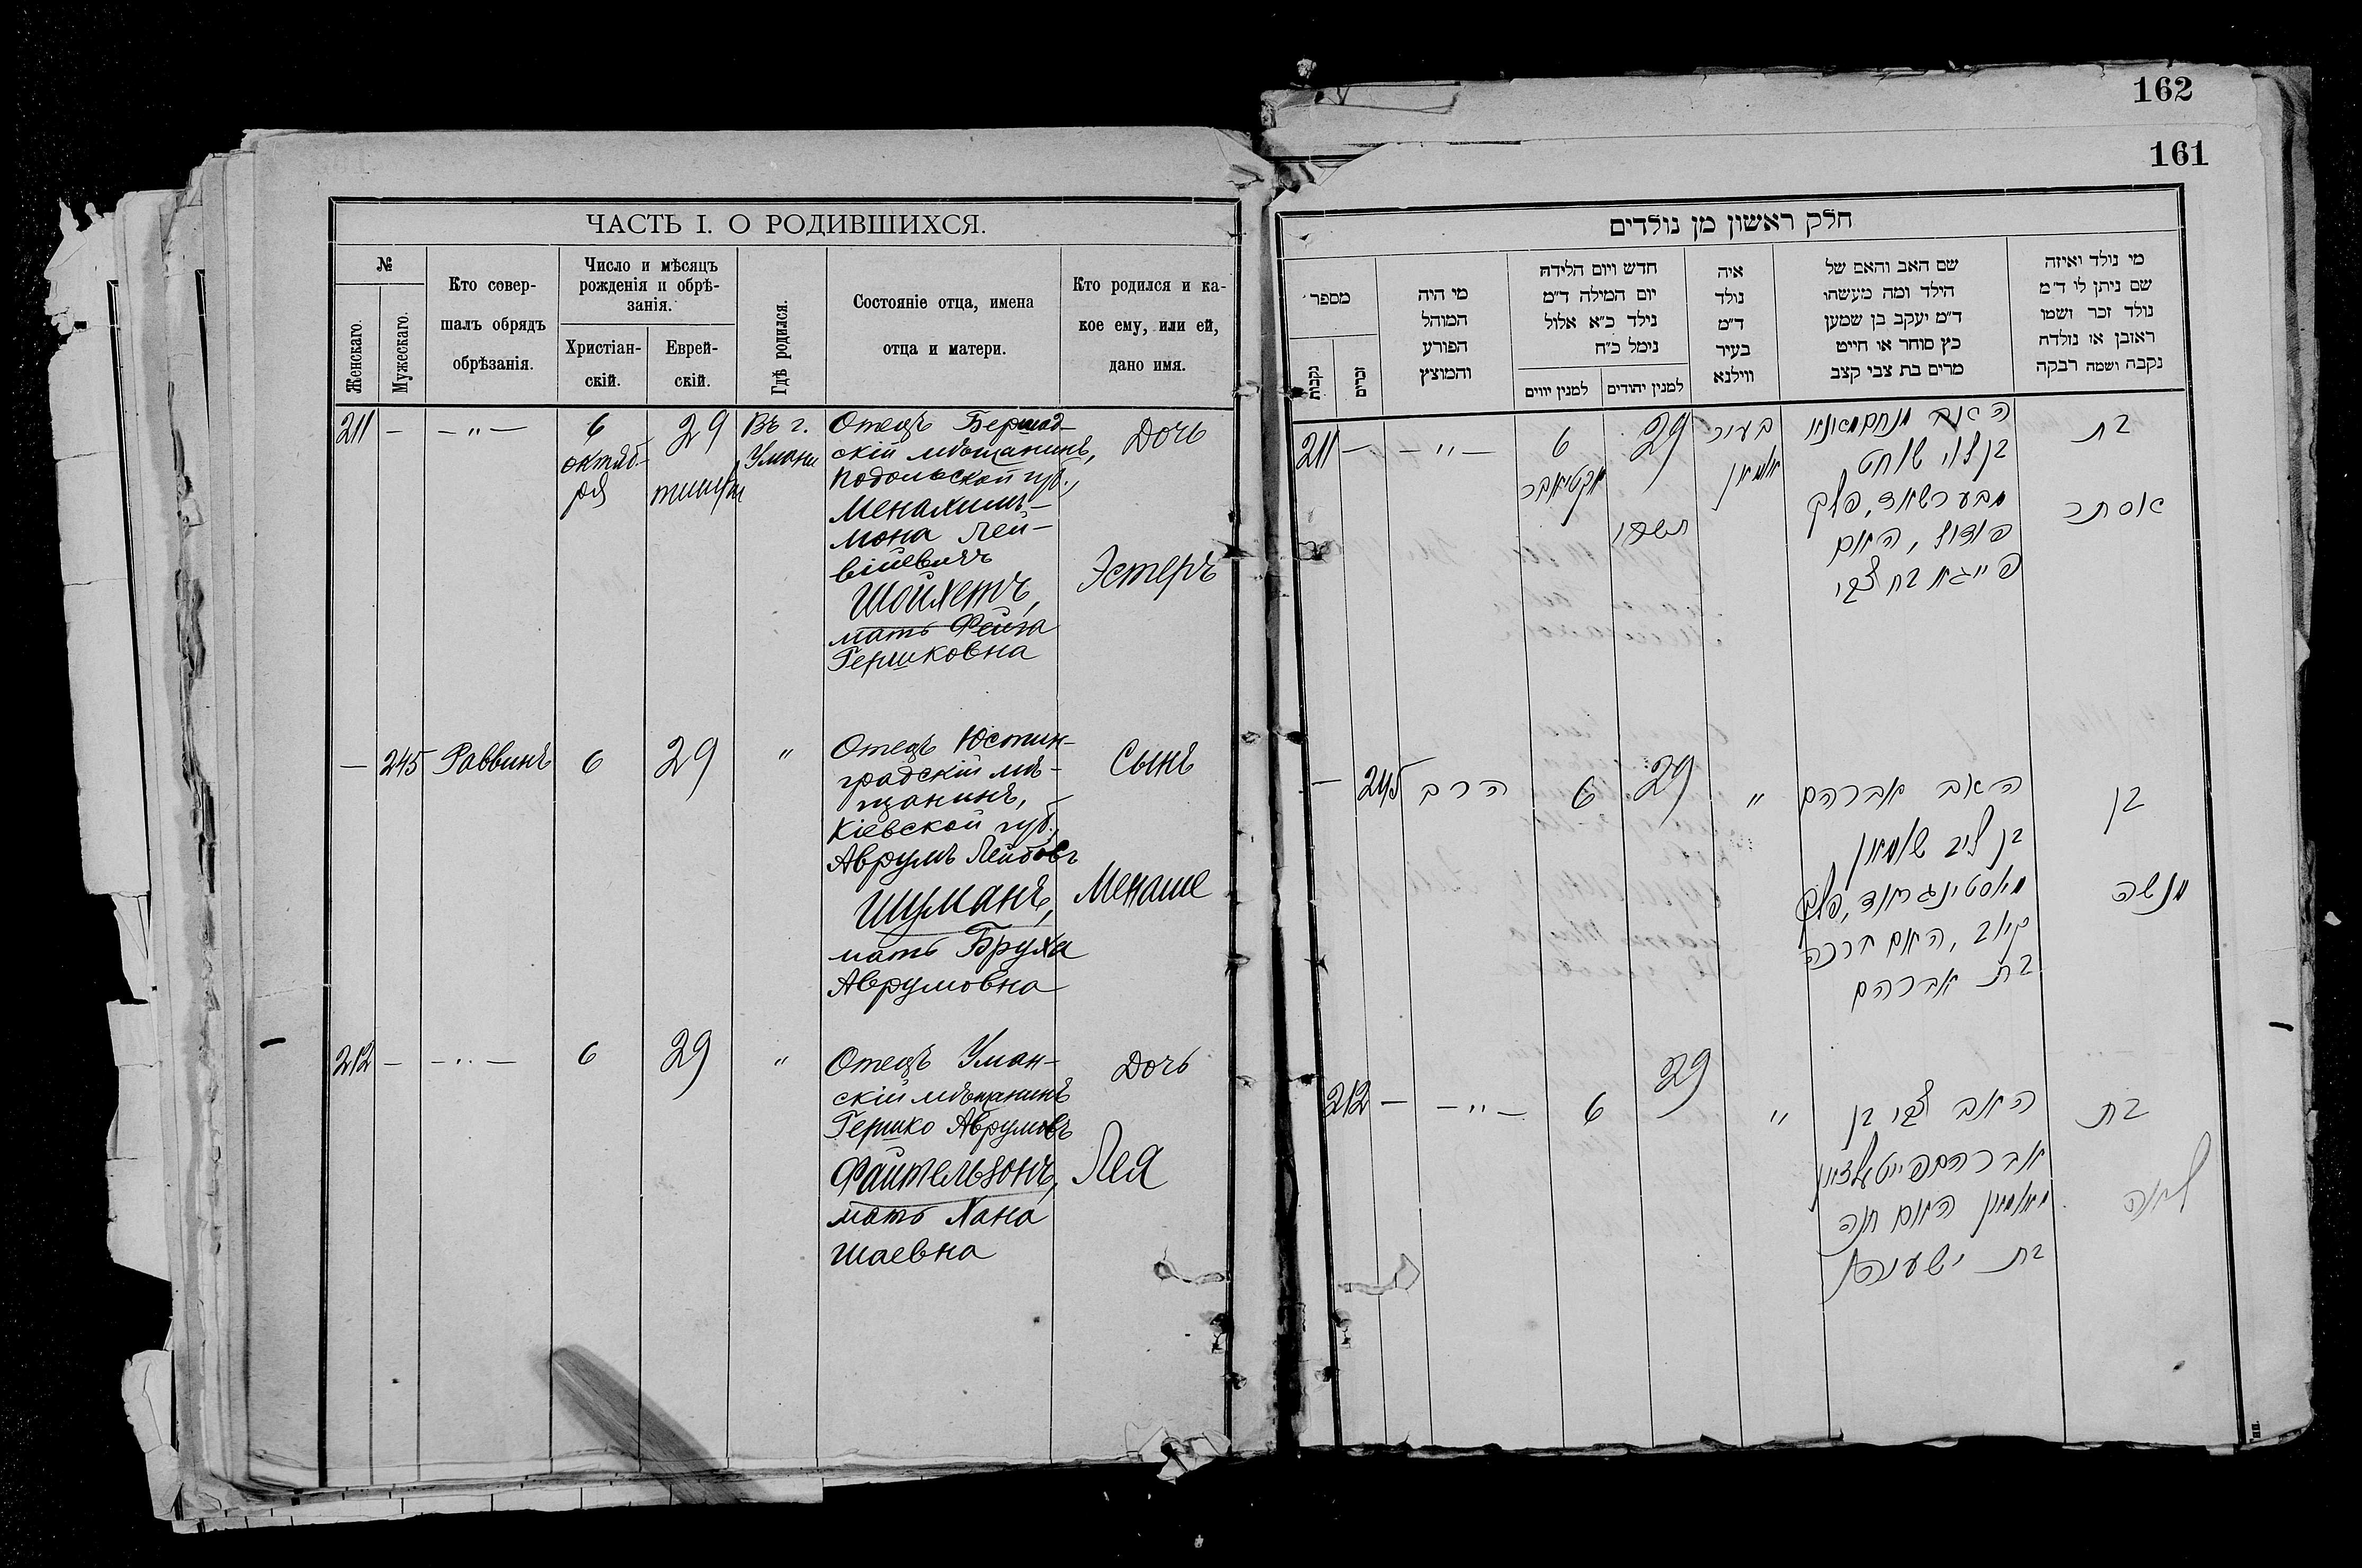 162
161
ЧАСТЬ I. О РОДИВШИХСЯ.
№
Женскаго.
Мужескаго.
Кто совер-
шалъ обрядъ
обрѣзанія.
Число и мѣсяцъ
рожденія и обрѣ-
занія.
Христіан-
скій.
Еврей-
скій.
Гдѣ родился.
Состояніе отца, имена
отца и матери.
Кто родился и ка-
кое ему, или ей,
дано имя.
211 — — " —
6
октяб-
ря
29
тишри
Въ г.
Умани
Отецъ Бершад-
скій мѣщанинъ,
Подольской губ.,
Менахимъ-
мона Лей-
віевичъ
Шойхетъ,
мать Фейга
Гершковна
Дочь
Эстеръ
— 245 Раввинъ 6 29 "
Отецъ Юстин-
градскій мѣ-
щанинъ,
Кіевской губ.,
Аврумъ Лейбовъ
Шуманъ,
мать Бруха
Аврумовна
Сынъ
Менаше
212 — — " — 6 29 "
Отецъ Уман-
скій мѣщанинъ
Гершко Аврумовъ
Файтельзонъ,
мать Хана
Шаевна
Дочь
Лея
חלק ראשון מן נולדים
מי נולד ואיזה
שם ניתן לו ד"מ
נולד זכר ושמו
ראובן או נולדה
נקבה ושמה רבקה
שם האב והאם של
הילד ומה מעשהו
ד"מ יעקב בן שמען
כץ סוחר או חייט
מרים בת צבי קצב
איה
נולד
ד"מ
בעיר
ווילנא
חדש ויום הלידה
יום המילה ד"מ
נילד כ"א אלול
נימל כ"ח
למנין יהודים
למנין יווים
מי היה
המוהל
הפורע
והמוצץ
מספר
זכרים
נקבות
בת
אסתר
האב מנחם
בן לוי שוחט
פלך
פודול, האם
פייגא בת צבי
בעיר
אומאן
29
תשרי
6
אקטיאבר
— " —
— 211
בן
מנשה
האב אברהם
בן ליב שומאן
פלך
קיוב, האם ברכה
בת אברהם
"
29
6
הרב
245 —
בת
לאה
האב צבי בן
אברהם פייטעלזאן
מאומאן האם חנה
בת ישעיה
"
29
6
— " —
— 212